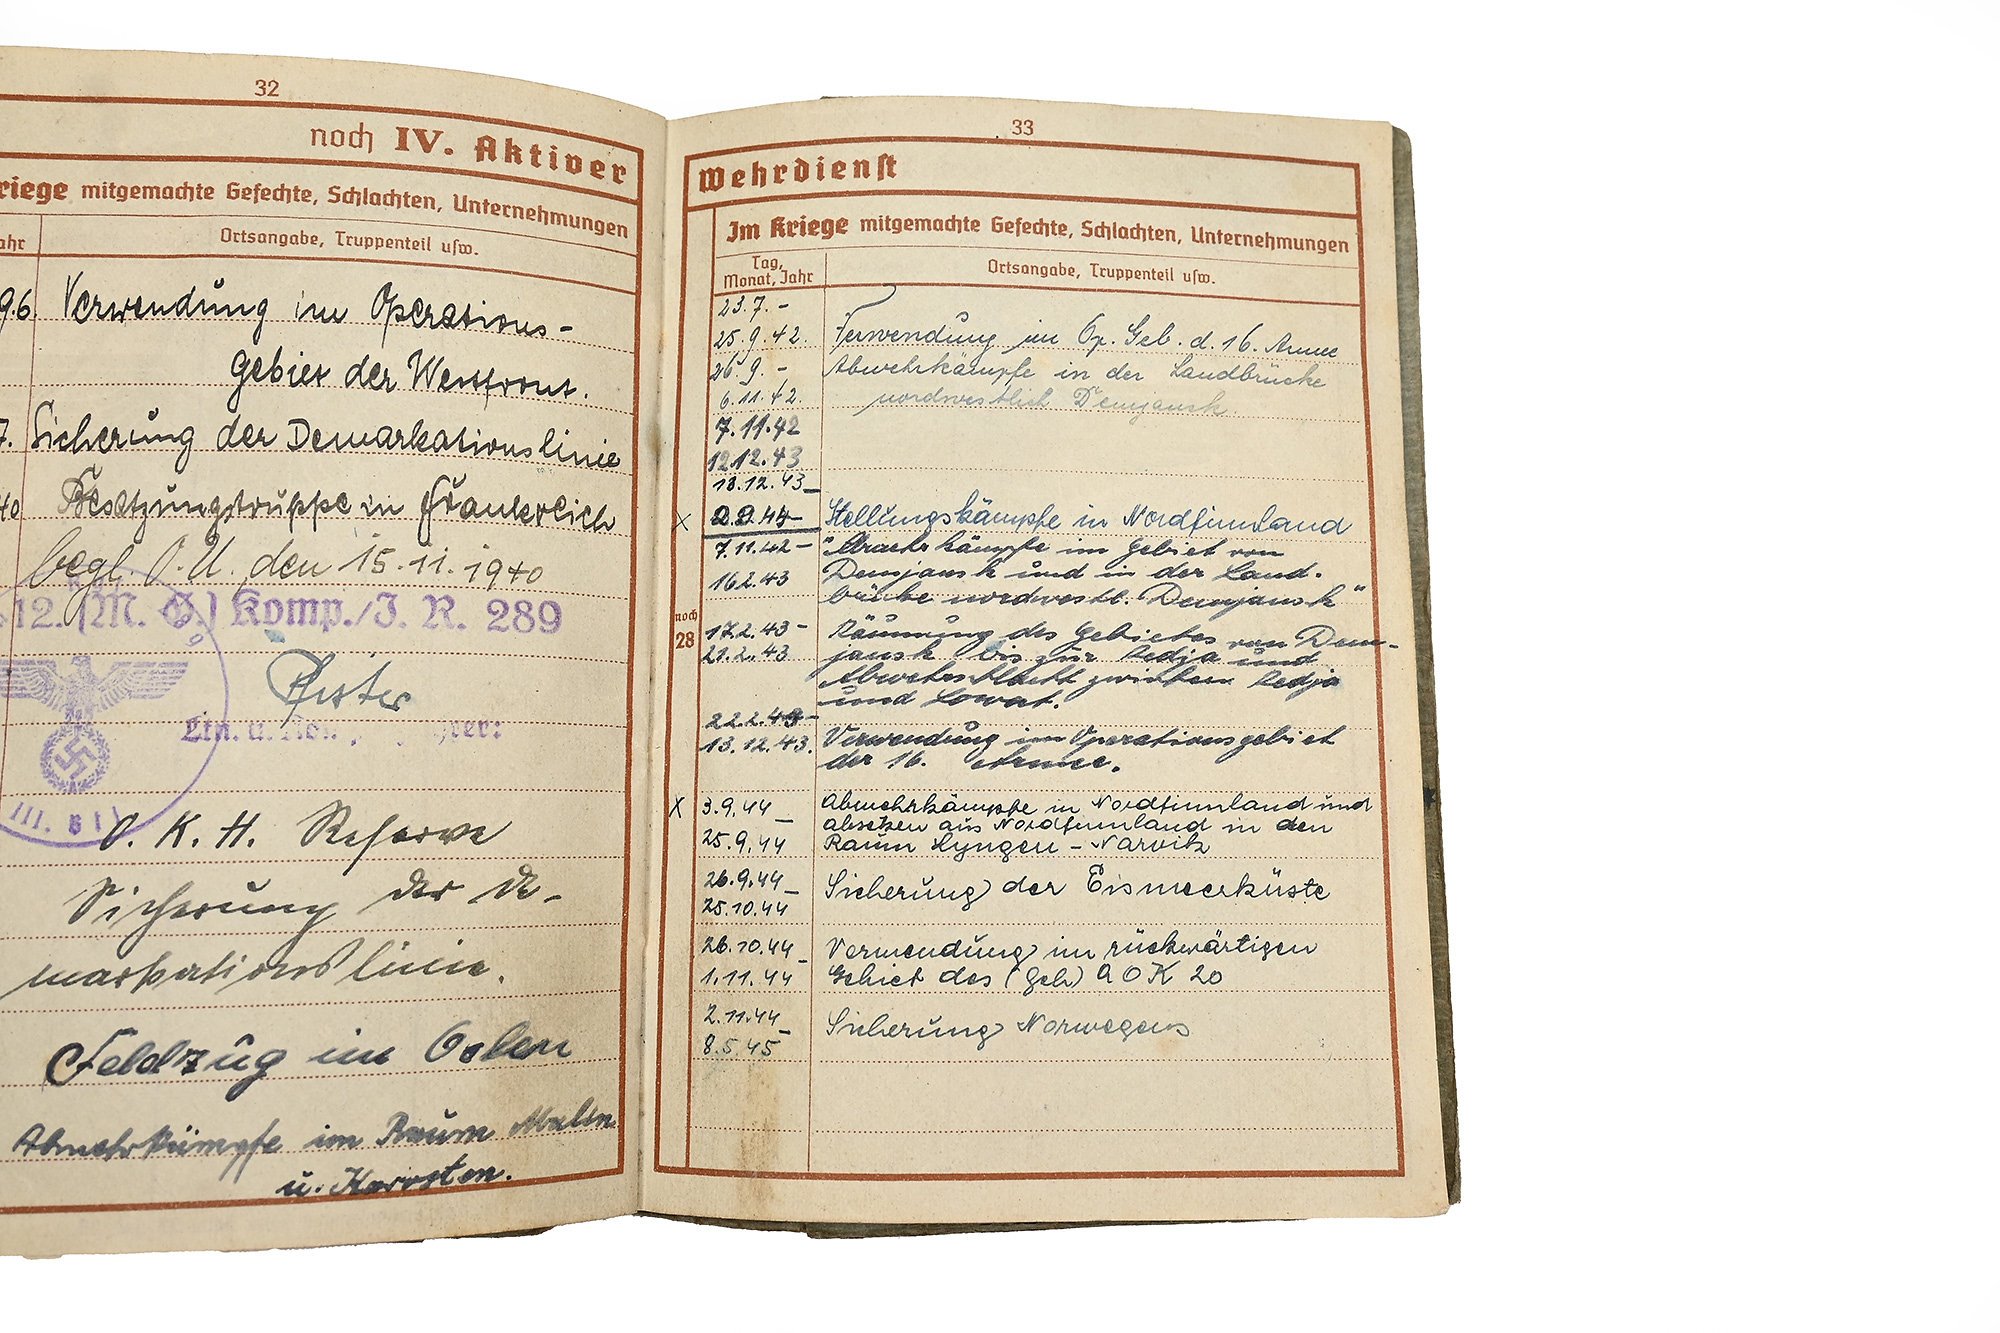 32
noch IV. Aktiver
riege mitgemachte Gefechte, Schlachten, Unternehmungen
ahr
Ortsangabe, Truppenteil usw.
9.6. Verwendung im Operations-
gebiet der Westfront.
7. Sicherung der Demarkationslinie
40 Besatzungstruppe in Frankreich
begl. O.U., den 15.11.1940
12. (M. G.) Komp./J. R. 289
Ltn. u.
III.
O. K. H. Reserve
Sicherung der De-
markationslinie.
Feldzug im Osten
Abwehrkämpfe im Raum
u.
33
Wehrdienst
Im Kriege mitgemachte Gefechte, Schlachten, Unternehmungen
Tag,
Monat, Jahr
Ortsangabe, Truppenteil usw.
23.7. -
25.9.42. Verwendung im Op. Geb. d. 16. Armee
26.9. - Abwehrkämpfe in der Landbrücke
6.11.42. nordwestlich Demjansk
7.11.42
12.12.43
13.12.43 -
x 2.9.44- Stellungskämpfe in Nordfinnland
7.11.42 - "Abwehrkämpfe im Gebiet von
16.2.43 Demjansk und in der Land-
brücke nordwestl. Demjansk"
noch
28
17.2.43 - Räumung des Gebietes von Dem-
21.2.43 jansk bis zur Redja und
Abwehrschlacht zwischen Redja
und Lowat.
22.2.43 -
13.12.43. Verwendung im Operationsgebiet
der 16. Armee.
x 3.9.44 - Abwehrkämpfe in Nordfinnland und
absetzen aus Nordfinnland in den
25.9.44 Raum Lyngen - Narvik
26.9.44 - Sicherung der Eismeerküste
25.10.44
26.10.44 - Verwendung im rückwärtigen
1.11.44 Gebiet des (Geb) AOK 20
2.11.44 - Sicherung Norwegens
8.5.45